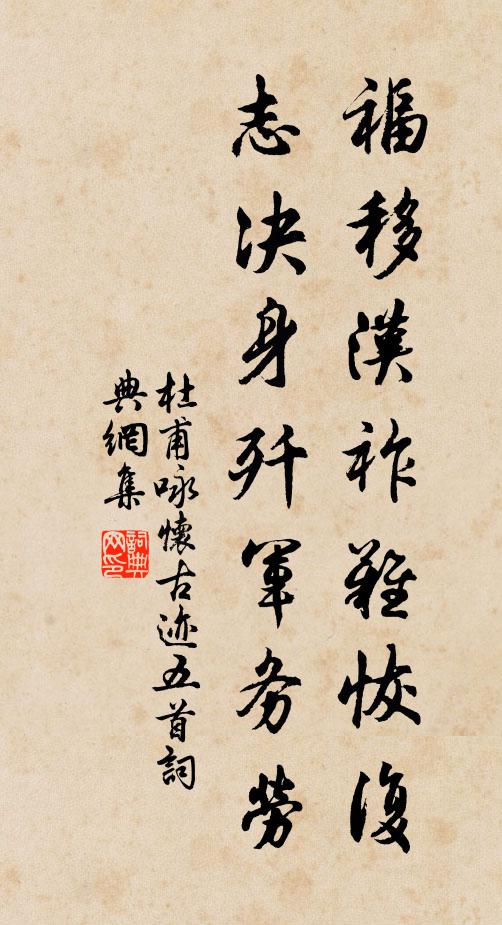 福移漢祚難恢復
志決身歼軍务勞
杜甫咏懷古迹五首詞
典網集
詞典
网印